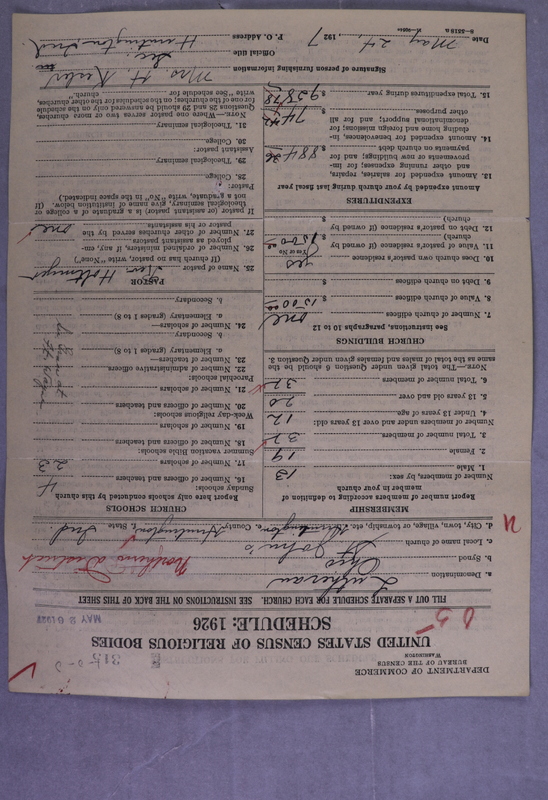 DEPARTMENT OF COMMERCE
BUREAU OF THE CENSUS
WASHINGTON
315
UNITED STATES CENSUS OF RELIGIOUS BODIES
SCHEDULE: 1926
MAY 26 1927
FILL OUT A SEPARATE SCHEDULE FOR EACH CHURCH. SEE INSTRUCTIONS ON THE BACK OF THIS SHEET
a. Denomination Lutheran
b. Synod Ohio Northern District
c. Local name of church St John's
d. City, town, village, or township, etc. Huntington, County, Huntington, State, Ind.
MEMBERSHIP
Report number of members according to definition of member in your church
Number of members, by sex:
1. Male 13
2. Female 19
3. Total number of members 32
Number of members under and over 13 years old:
4. Under 13 years of age 12
5. 13 years old and over 20
6. Total number of members 32
NOTE.—The total given under Question 6 should be the same as the total of males and females given under Question 3.
CHURCH BUILDINGS
See instructions, paragraphs 10 to 12
7. Number of church edifices one
8. Value of church edifices $ 1500.00
9. Debt on church edifices $
10. Does church own pastor's residence yes
(Yes or No)
11. Value of pastor's residence (if owned by church) $ 1500.00
12. Debt on pastor's residence (if owned by church) $
EXPENDITURES
Amount expended by your church during last fiscal year
13. Amount expended for salaries, repairs, and other running expenses; for improvements or new buildings; and for payments on church debt $ 884.36
14. Amount expended for benevolences, including home and foreign missions; for denominational support; and for all other purposes $ 74.42
15. Total expenditures during year $ 958.78
CHURCH SCHOOLS
Report here only schools conducted by this church
Sunday schools:
16. Number of officers and teachers 4
17. Number of scholars 23
Summer vacation Bible schools:
18. Number of officers and teachers
19. Number of scholars
Week-day religious schools:
20. Number of officers and teachers
21. Number of scholars
Parochial schools:
22. Number of administrative officers
23. Number of teachers—
a. Elementary (grades 1 to 8)
b. Secondary
24. Number of scholars—
a. Elementary (grades 1 to 8)
b. Secondary
PASTOR
25. Name of pastor
(If church has no pastor, write "None")
26. Number of ordained ministers, if any, employed as assistant pastors
27. Number of other churches served by the pastor or his assistants one
If pastor (or assistant pastor) is a graduate of a college or theological seminary, give name of institution below. (If not a graduate, write "No" in the space indicated.)
Pastor:
28. College
29. Theological seminary
Assistant pastor:
30. College
31. Theological seminary
NOTE.—Where one pastor serves two or more churches, Questions 28 and 29 should be answered only on the schedule for one of the churches; on the schedules for the other churches, write "See schedule for church."
Signature of person furnishing information Mrs. H.
Official title Sec.
P. O. Address Huntington, Ind
Date May 24, 1927